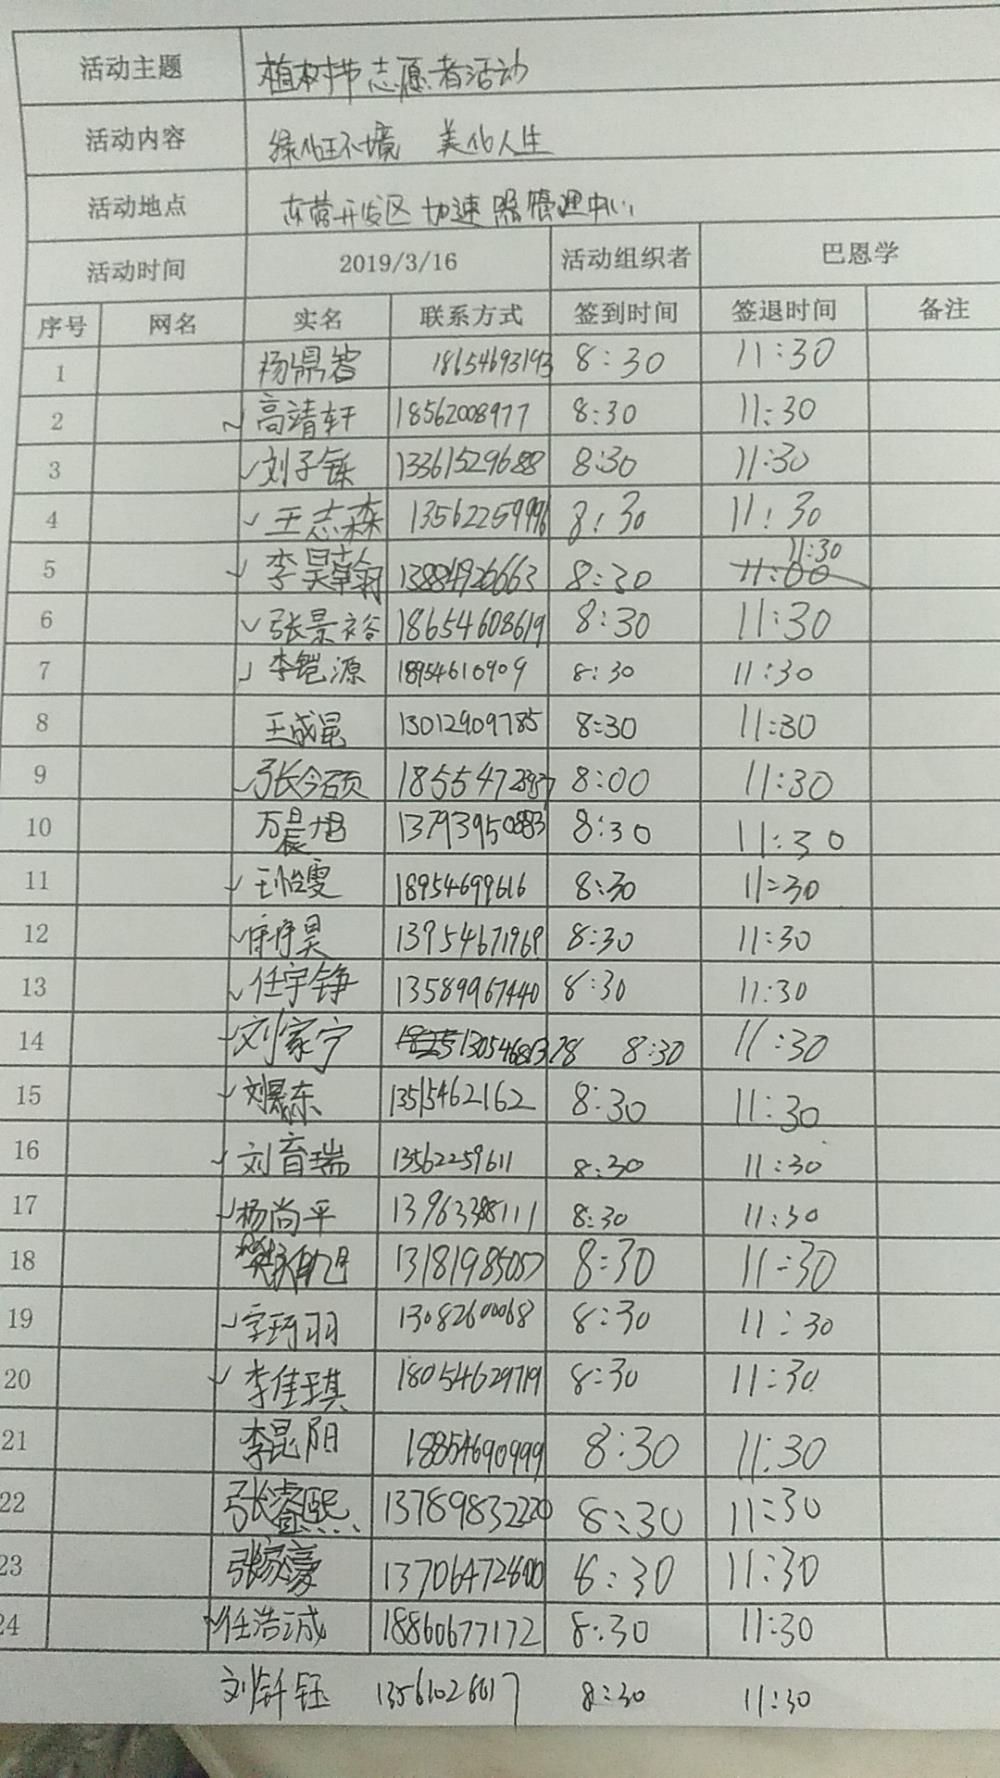 活动主题 植树节志愿者活动
活动内容 绿化环境 美化人生
活动地点 东营开发区加速器管理中心
活动时间 2019/3/16 活动组织者 巴恩学
序号 网名 实名 联系方式 签到时间 签退时间 备注
1 杨鼎智 18654693193 8:30 11:30
2 高靖轩 18562008977 8:30 11:30
3 刘子铄 13361529688 8:30 11:30
4 王志森 13562259996 8:30 11:30
5 李昊翰 13884926663 8:30 11:00 11:30
6 张景裕 18654608619 8:30 11:30
7 李铠源 18954610909 8:30 11:30
8 王成昆 13012909785 8:30 11:30
9 张今硕 8:00 11:30
10 万晨旭 13793950883 8:30 11:30
11 王怡雯 18954699616 8:30 11:30
12 昊 13954671969 8:30 11:30
13 任宇铮 13589967440 8:30 11:30
14 刘家宁 8:30 11:30
15 刘晟东 13515462162 8:30 11:30
16 刘育瑞 13562259611 8:30 11:30
17 杨尚平 8:30 11:30
18 13181985057 8:30 11:30
19 羽 13082600068 8:30 11:30
20 李佳琪 18054629719 8:30 11:30
21 李昆阳 18854690999 8:30 11:30
22 张睿熙 13789832220 8:30 11:30
23 张家豪 13706472600 8:30 11:30
24 任浩诚 18860677172 8:30 11:30
刘钎钰 8:30 11:30